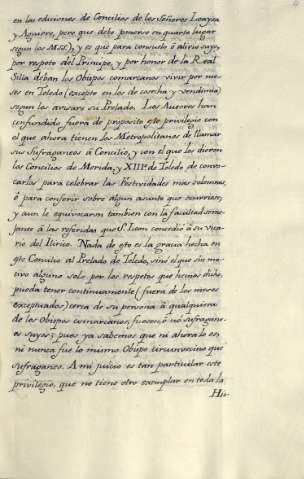 en las ediciones de Concilios de los Señores Loaysa
y Aguirre, pero que debe ponerse en quarto lugar
segun los MSS), y es que para consuelo o alivio suyo,
por respeto del Principe, y por honor de la Real
Silla deban los Obispos comarcanos vivir por me-
ses en Toledo (excepto en los de cosecha y vendimia)
segun los avisare su Prelado. Los Autores han
confundido fuera de proposito este privilegio con
el que ahora tienen los Metropolitanos de llamar
sus Sufraganeos à Concilio, y con el que les dieron
los Concilios de Merida, y XIIIº de Toledo de convo-
carlos para celebrar las Festividades mas solemnes,
ò para conferir sobre algun asunto que ocurriese;
y aun le equivocaron tambien con la facultad seme-
jante à las referidas que S. Leon concedió à su Vica-
rio del Ilirico. Nada de esto es la gracia hecha en
este Concilio al Prelado de Toledo, sinó el que sin mo-
tivo alguno solo por los respetos que hemos dicho,
pueda tener continuamente (fuera de los meses
exceptuados) cerca de su persona à qualquiera
de los Obispos comarcanos, fuesen, ò nó sufragane-
os suyos; pues ya sabemos que ni ahora lo es,
ni nunca fué lo mismo Obispo circunvecino que
sufraganeo. A mi juicio es tan particular este
privilegio, que no tiene otro exemplar en toda la
His-